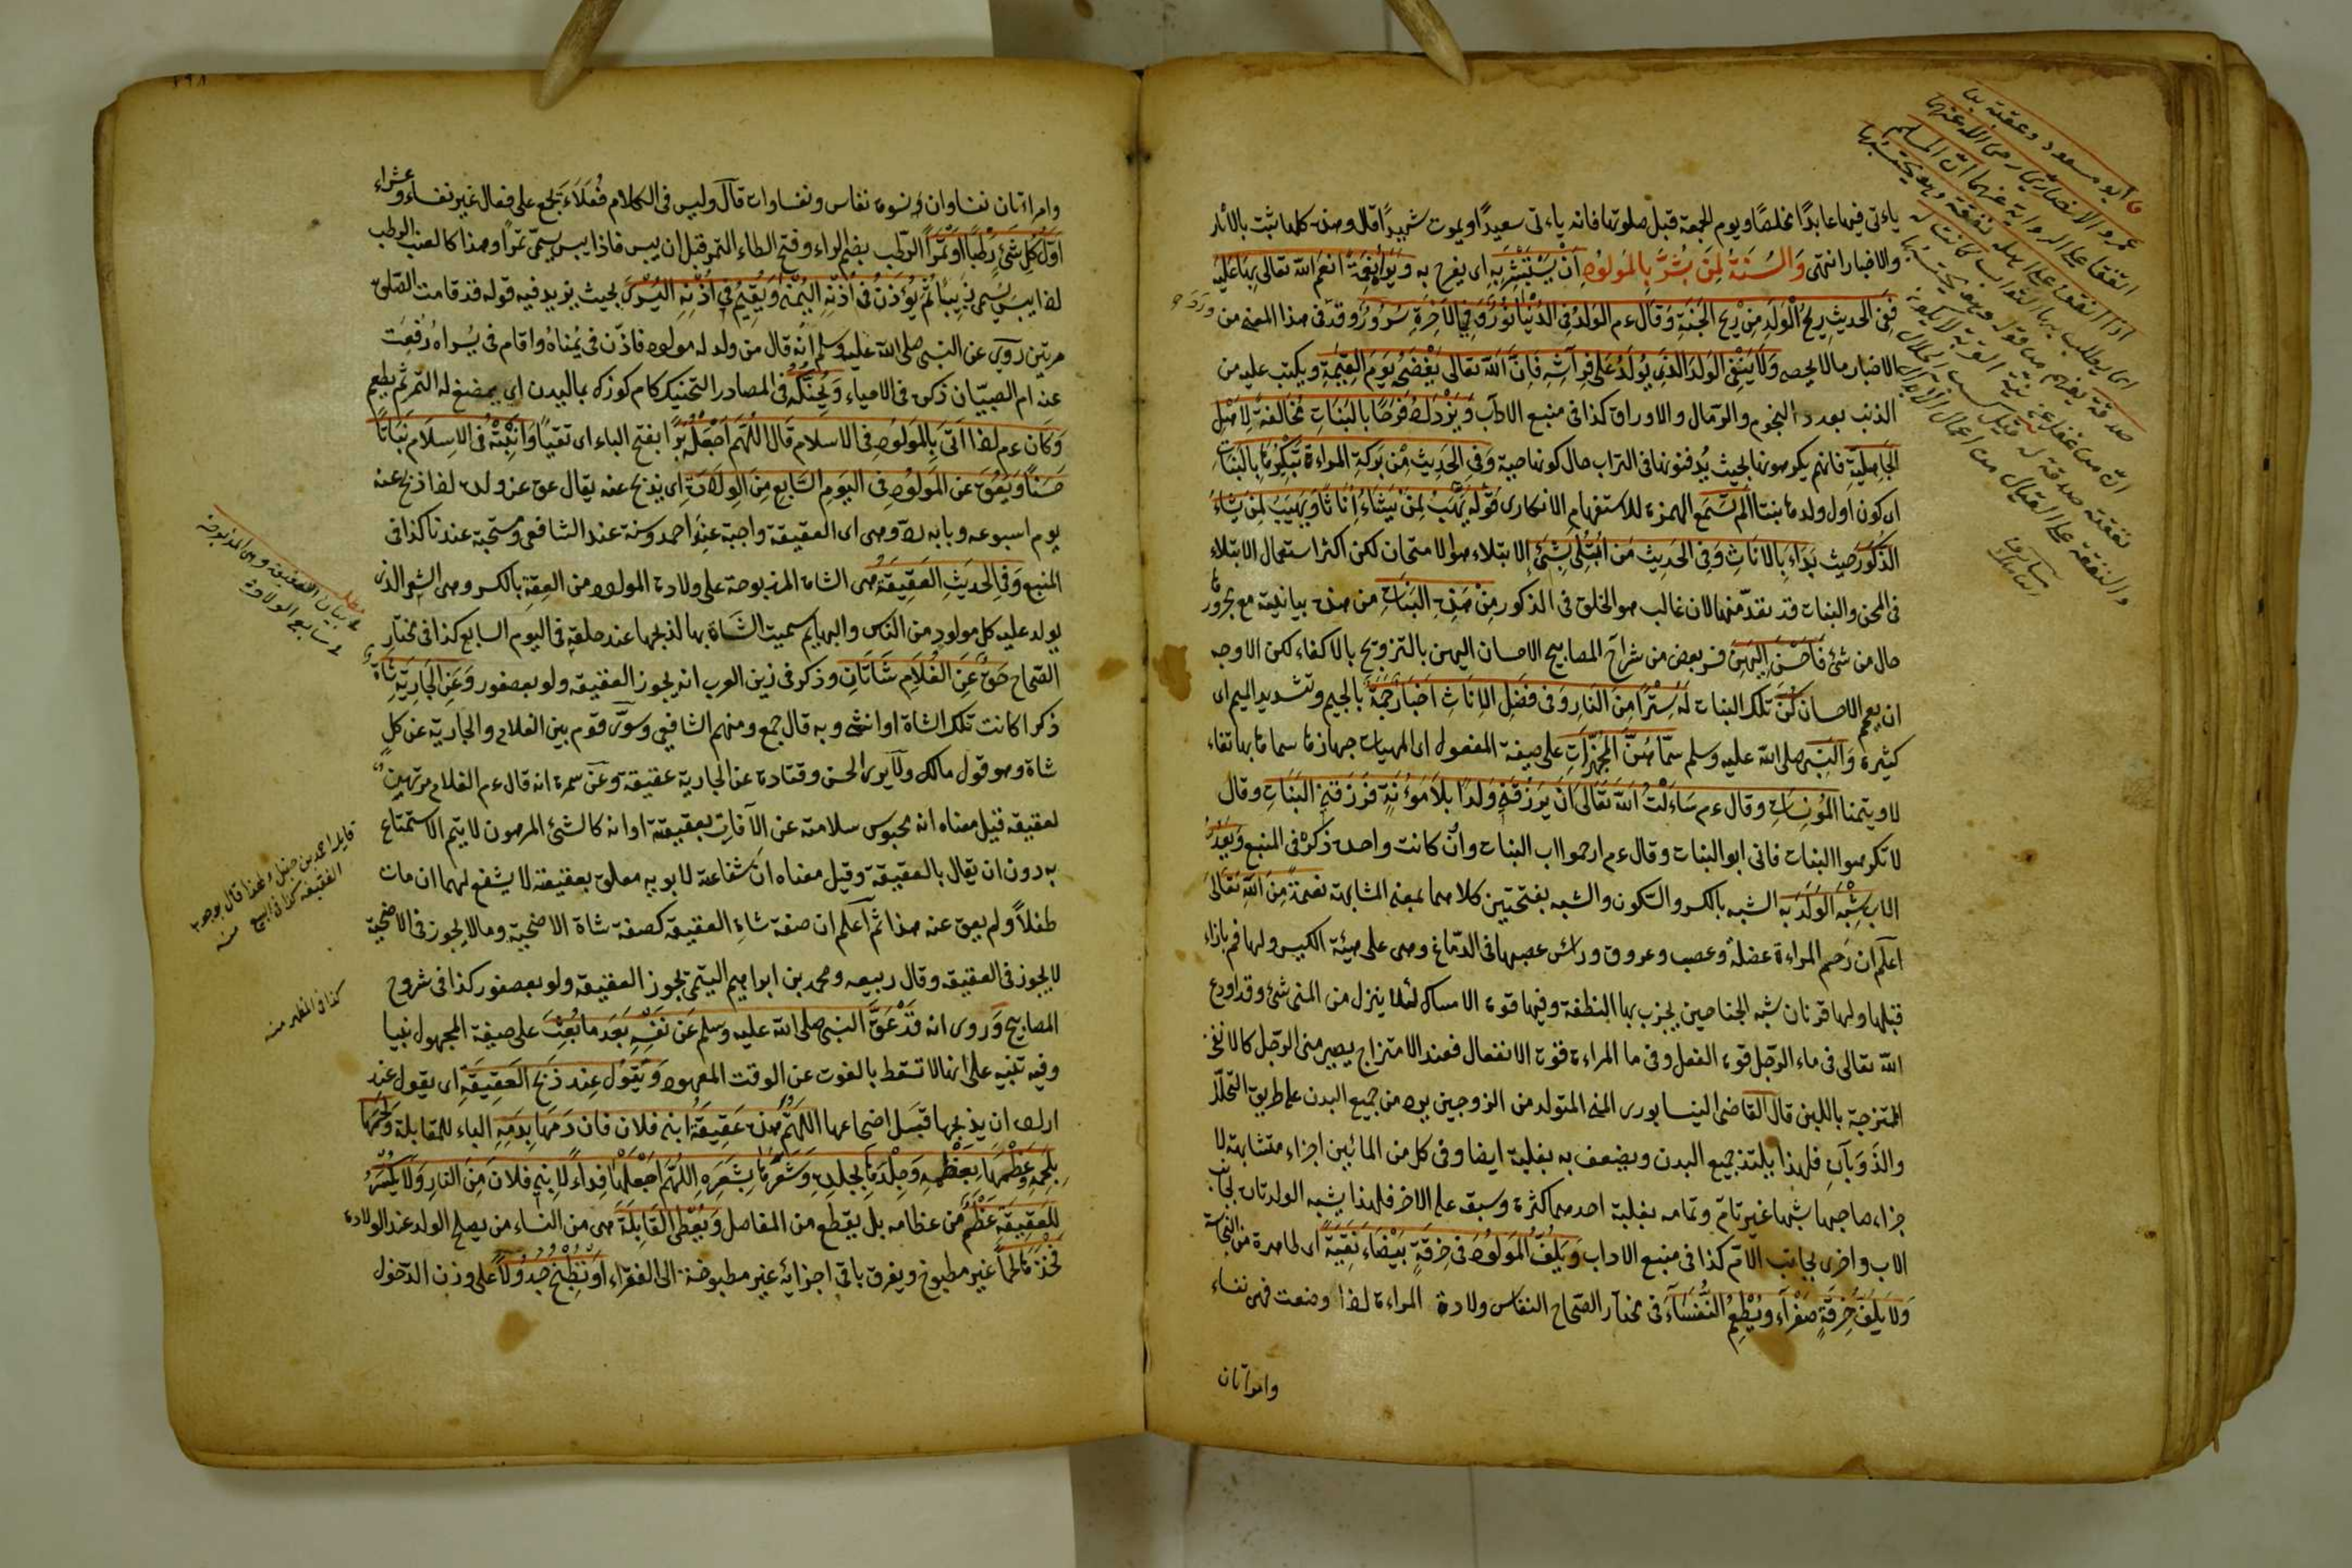 ياءتى فيها عابدًا مخلصًا ويوم الجمعة قبل صلوتها فانه ياءتى سعيدًا ويموت شهيدًا قال وهذه كلها ثبت بالآثار
والاخبار انتهى وَالسُنَةُ لِمَنْ بُشِّرَ بِالمَولُودِ اَنْ يَسْتَبْشِرَ بِهِ اى يفرح به وَيَرَاهُ نِعْمَةً انعم الله تعالى بها عَلَيْهِ
فَفِى الحَدِيثِ رِيحُ الْوَلَدِ مِنْ رِيحِ الجَنَّةِ وَقَالَ ءم الوَلَدُ فِى الدُنْيَا نُورٌ وَفِى الآخِرَةِ سُرُورٌ وقد فى هذا المعنى من
الاخبار مالا يحصى وَلَا يَنْفِى الوَلَدَ الَذِى يُولَدُ عَلَى فِرَاشِهِ فَاِنَّ اللهَ تعالى يَفْضَحُهُ يَوْمَ القِيمَةِ ويكتب عليه من
الذنب بعدد النجوم والرّمال والاوراق كذا فى منبع الاداب وَيَزْدَادُ فَرَحًا بِالبَنَاتِ مُخَالَفَةً لِاَهْلِ
الجَاهِلِيَّةِ فانهم يكرهونها بحيث يُدفنونها فى التراب حال كونها حية وَفِى الحَدِيثِ مِنْ بَرَكَةِ المراءةِ تَبْكِيرُهَا بِالبَنَاتِ
اى كون اول ولدها بنتا اَلَمْ تَسْمَعِ الهمزة للاستفهام الانكارى قَوْلَهُ يَهَبُ لِمَنْ يَشَاءُ اِنَاثًا وَيَهَبُ لِمَنْ يَشَاءُ
الذُكُورَ حيث بَدَاءَ بِالاِنَاثِ وَفِى الحَدِيثِ مَنِ ابْتُلِىَ بِشَئٍ الابتلاء هو الامتحان لكن اكثر استعمال الابتلاء
فى المحن والبنات قد تعدّ منها لان غالب هو الخلق فى الذكور مِنْ هَذِهِ البَنَاتِ من هذه بيانية مع مجرورها
حال من شئ فَاَحْسَنَ اِلَيْهِنَّ فسر بعض من شراح المصابيح الاحسان اليهن بالتزويج بالاكفاء لكن الاوجه
ان يعم الاحسان كُنَّ تلك البنات لَهُ سِتْرًا مِنَ النَارِ وَفِى فَضْلِ الاِنَاثِ اَخْبَارٌ جَمَّةٌ بالجيم وتشديد الميم اى
كثيرة وَالنَبِىُّ صلى الله عليه وسلم سَمَّاهُنَّ المُجَهَّزَاتِ على صيغة المفعول اى المهيات جهازها سماها بها تفاء
لا ويتمنا المُونِسَاتِ وقال ءم سَاءَلْتُ اللهَ تَعَالَى اَنْ يَرْزُقَنِى وَلَدًا بِلَا مَوُءنَةٍ فَرَزَقَنِىَ البَنَاتِ وقال
لا تكرهوا البنات فانى ابو البنات وقال ءم ارحموا اب البنات وان كانت واحدة ذكره فى المنبع وَيَعُدُّ
الاَبُ شِبْهَ الوَلَدِ بِهِ الشبه بالكسر والسّكون والشبه بفتحتين كلاهما بمعنى المشابهة نِعْمَةً مِنَ اللهِ تَعَالَى
اعلم ان رحم المراءة عضلة وعصب وعروق وراءس عصبها فى الدّماغ وهى على هيئة الكيس ولها فم بازاء
قبلها ولها قرنان شبه الجناحين يجذب بها النطفة وفيها قوة الامساك لئلا ينزل من المنى شئ وقد اودع
الله تعالى فى ماء الرّجل قوة الفعل وفى ما المراءة قوة الانفعال فعند الامتزاج يصير منى الرّجل كالانفخ
المتزجة باللبن قال القاضى النيسابورى المنى المتولد من الزوجين يرد من جميع البدن على طريق التحلّل
والذَوَبَانِ فلهذا يلتذ جميع البدن ويضعف به بغلبة ايضا وفى كل من المائين اجزاء متشابهة لا
جزاء صاحبها شبها غير تامّ وتمامه بغلبة احدهما كثرة وسبقه على الاخر فلهذا يشبه الولد تارة لجانب
الاب واخرى بجانب الامّ كذا فى منبع الاداب وَيَلُفُّ المَوْلُودَ فِى خِرْقَةٍ بَيْضَاءَ نَقِيَّةً اى طاهرة من النجاسة
وَلَا يَلُفُّ خِرْقَةٍ صَفْرَاءَ وَيُطْعِمُ النُفَسَاءَ فى مختار الصّحاح النفاس ولادة المراءة اذا وضعت فهى نفساء
وامرأتان
وامراءتان نفساوان ونسوة نفاس ونفساوات قال وليس فى الكلام فُعَلَاءُ يجمع على فعال غير نفساء وعشراء
اَوَّلَ كُلِ شَئٍ رُطَبًا اَوْ تَمْرًا الرّطب بضم الراء وفتح الطاء التمر قبل ان ييبس فاذا يبس يسمىّ تمرًا وهذا كالعنب الرطب
اذا يبس يسمى زبيبًا ثُمَّ يُؤَذِنُ فِى اُذُنِهِ اليُمْنَى وَيُقِيمُ فِى اُذُنِهِ اليُسْرَى بحيث يزيد فيه قوله قد قامت الصّلوة
مرتين رُوِىَ عن النبى صلى الله عليه وسلم انه قال من ولد له مولود فاذّن فى يُمناهُ واقام فى يُسراهُ رُفِعَت
عنه ام الصبيّان ذكره فى الاحياء وَيُحَنِّكُهُ فى المصادر التحنيك كام كوزك بماليدن اى يمضغ له التّمر ثم يطعم
وَكَانَ ءم اذا اَتَى بِالمَولُودِ فى الاسلام قَالَ اللَهُمَّ اجْعَلْهُ بَرًّا بفتح الباء اى تقيًا وَاَنْبِتْهُ فى الاِسلَامِ نَبَاتًا
حَسَنًا وَيَعُقَّ عَنِ المَولُودِ فى اليَوْمِ السَابِعِ مِنَ الوِلَادَةِ اى يذبح عنه يقال عق عن ولده اذا ذبح عنه
يوم اسبوعه وبابه ردّ وهى اى العقيقة واجبة عند احمد وسنة عند الشافعى ومستحبة عندنا كذا فى
المنبع وَفِى الحَدِيثِ العَقِيقَةُ هى الشاة المذبوحة على ولادة المولود من العقة بالكسر وهى الشعر الذى
يولد عليه كل مولود من الناس والبهايم سميت الشاة بها لذبحها عند حلقه فى اليوم السابع كذا فى مختار
الصّحاح حَقٌّ عَنِ الغُلَامِ شَاتَانِ وذكر فى زين العرب انه يجوز العقيقه ولو بعصفور وَعَنِ الجَارِيَةِ شَاةٌ
ذكرا كانت تلك الشاة او انثى وبه قال جمع ومنهم الشافعى وسوّى قوم بين الغلام والجارية عن كلٍ
شاة وهو قول مالك ولا يرى الحسن وقتادة عن الجارية عقيقة وعن سمرة انه قال ءم الغلام مرتهن
لعقيقه قيل معناه انه محبوس سلامته عن الآفات بعقيقته او انه كالشئ المرهون لا يتم الاستمتاع
به دون ان يقال بالعقيقة وقيل معناه انّ شفاعة لابويه معلق بعقيقته لا يشفع لهما ان مات
طفلاً ولم يعق عنه هذا ثم اعلم ان صفة شاة العقيقه كصفة شاة الاضحية ومالا يجوز فى الاضحية
لا يجوز فى العقيقة وقال ربيعه ومحمد بن ابراهيم اليتمى يجوز العقيقه ولو بعصفور كذا فى شروح
المصابيح وَروى انه قَدْ عَقَّ النبى صلى الله عليه وسلم عَنْ نَفْسِهِ بَعْدَ مَا بُعِثَ على صيغة المجهول نبيا
وفيه تنبيه على انها لا تسقط بالفوت عن الوقت المعهود وَيَقُولُ عِنْدَ ذَبْحِ العَقِيقَةِ اى يقول عند
ارادة ان يذبحها قبل اضجاعها اللَهُمَّ هَذِهِ عَقِيقَةُ ابنى فلان فان دَمَهَا بِدَمِهِ الباء للمقابلة وَلَحْمَهَا
بِلَحْمِهِ وَعَظْمَهَا بِعَظْمِهِ وَجِلْدَهَا بِجِلدِهِ وَشَعْرَهَا بِشَعْرِهِ اللَهُمَّ اجْعَلْهَا فِدَاءً لِابنى فلان مِنَ النَارِ وَلَا يَكْسِرُ
لِلعَقِيقَةِ عَظْمٌ من عظامه بل يقطع من المفاصل وَيُعْطَى القَابِلَةَ هى من النساء من يصلح الولد عند الولادة
فَخْذَهَا لحمًا غير مطبوخ ويفرق باقى اجزائه غير مطبوخة الى الفقراء اَوْ تُطْبَخُ جُدُولًا على وزن الدّخول
ابو مسعود وعقبة بن
عمرو الانصارى رضى الله عنهما
اتفقا على الرواية عنهما انّ المسلم
اذا انفق على اهله نفقة وهو يحتسبها
اى يطلب بها الثواب كانت له
صدقة يفهم من قوله وهو يحتسبها
انّ من غفل عن نية القربة لا يكون
نفقته صدقة له
والنفقة على العيال من اعمال الابرار
مطلب
فى بيان العقيقة وهى المذبوحة
فى سابع الولادة
قايله احمد بن حنبل ولهذا قال بوجوب
العقيقه كذا فى المنبع منه
كذا فى المظهر منه